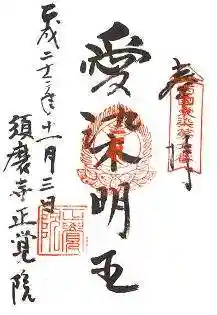 奉拝
愛染明王
平成二十二年十一月三日
須磨寺正覚院